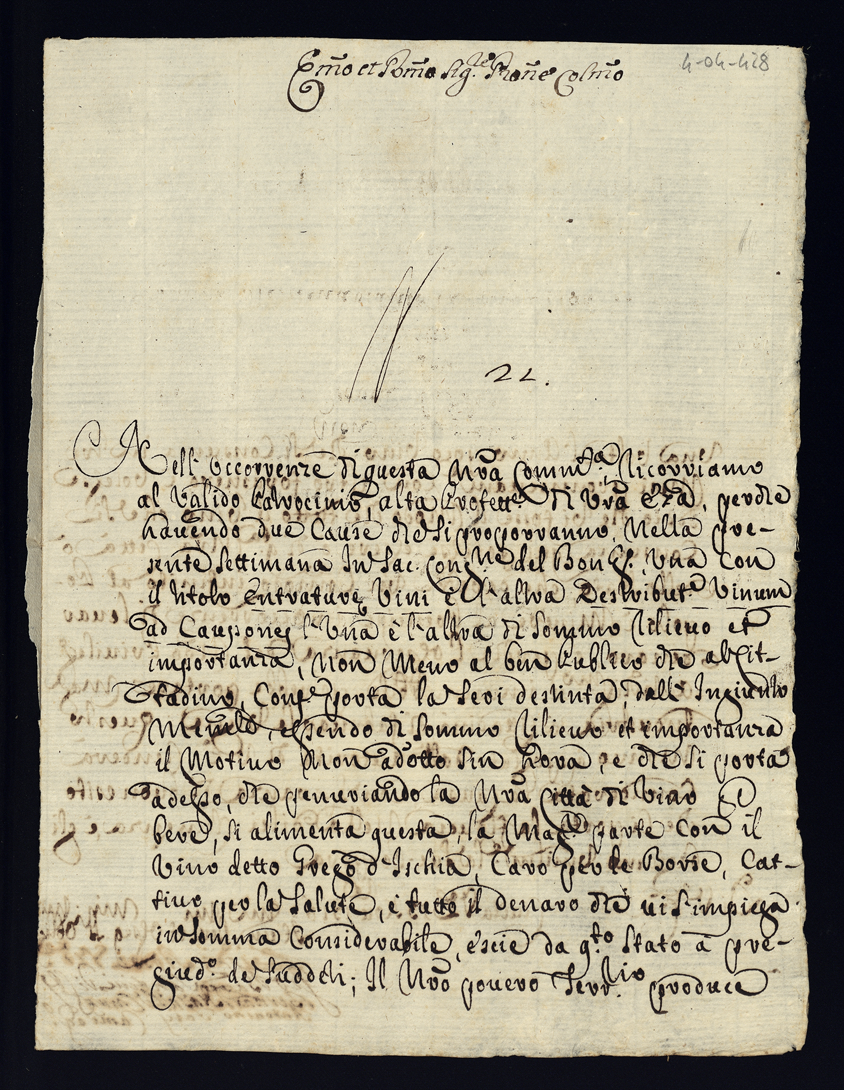 4-04-428
Em̃o et Rm̃o Sig.re Prone Colmo
22.
Nell' occorrenze di questa Nrã Comm.tà, Ricorriamo
al Valido Patrocinio, alta Protett.e di Vrã Em̃a, perche
havendo due Cause che si proporranno, Nella pre-
sente settimana In Sac. Cong.ne del Bon Gov. Una Con
il titolo Entrature Vini è l'altra Destribut.e Vinum
ad Caupones l'Una è l'altra di sommo Rilievo et
importanza, Non Meno al ben Publico che al Cit-
tadino, Come porta la Seri destinta, dall' Ingiunto
essendo di sommo Rilievo et importanza
il Motivo Non adotto sin hora, e che si porta
adesso, che penuriando la Nrã Città di Vino
bere, si alimenta questa, la Mag.r parte Con il
Vino detto Grego d'Ischia, Caro per le Borse, Cat-
tivo per la Salute, è tutto il denaro che vi s'impiega
in Somma Considerabile, escie da q.to Stato à pre-
giud.o de Sudditi; Il Nrõ povero Terr.rio produce